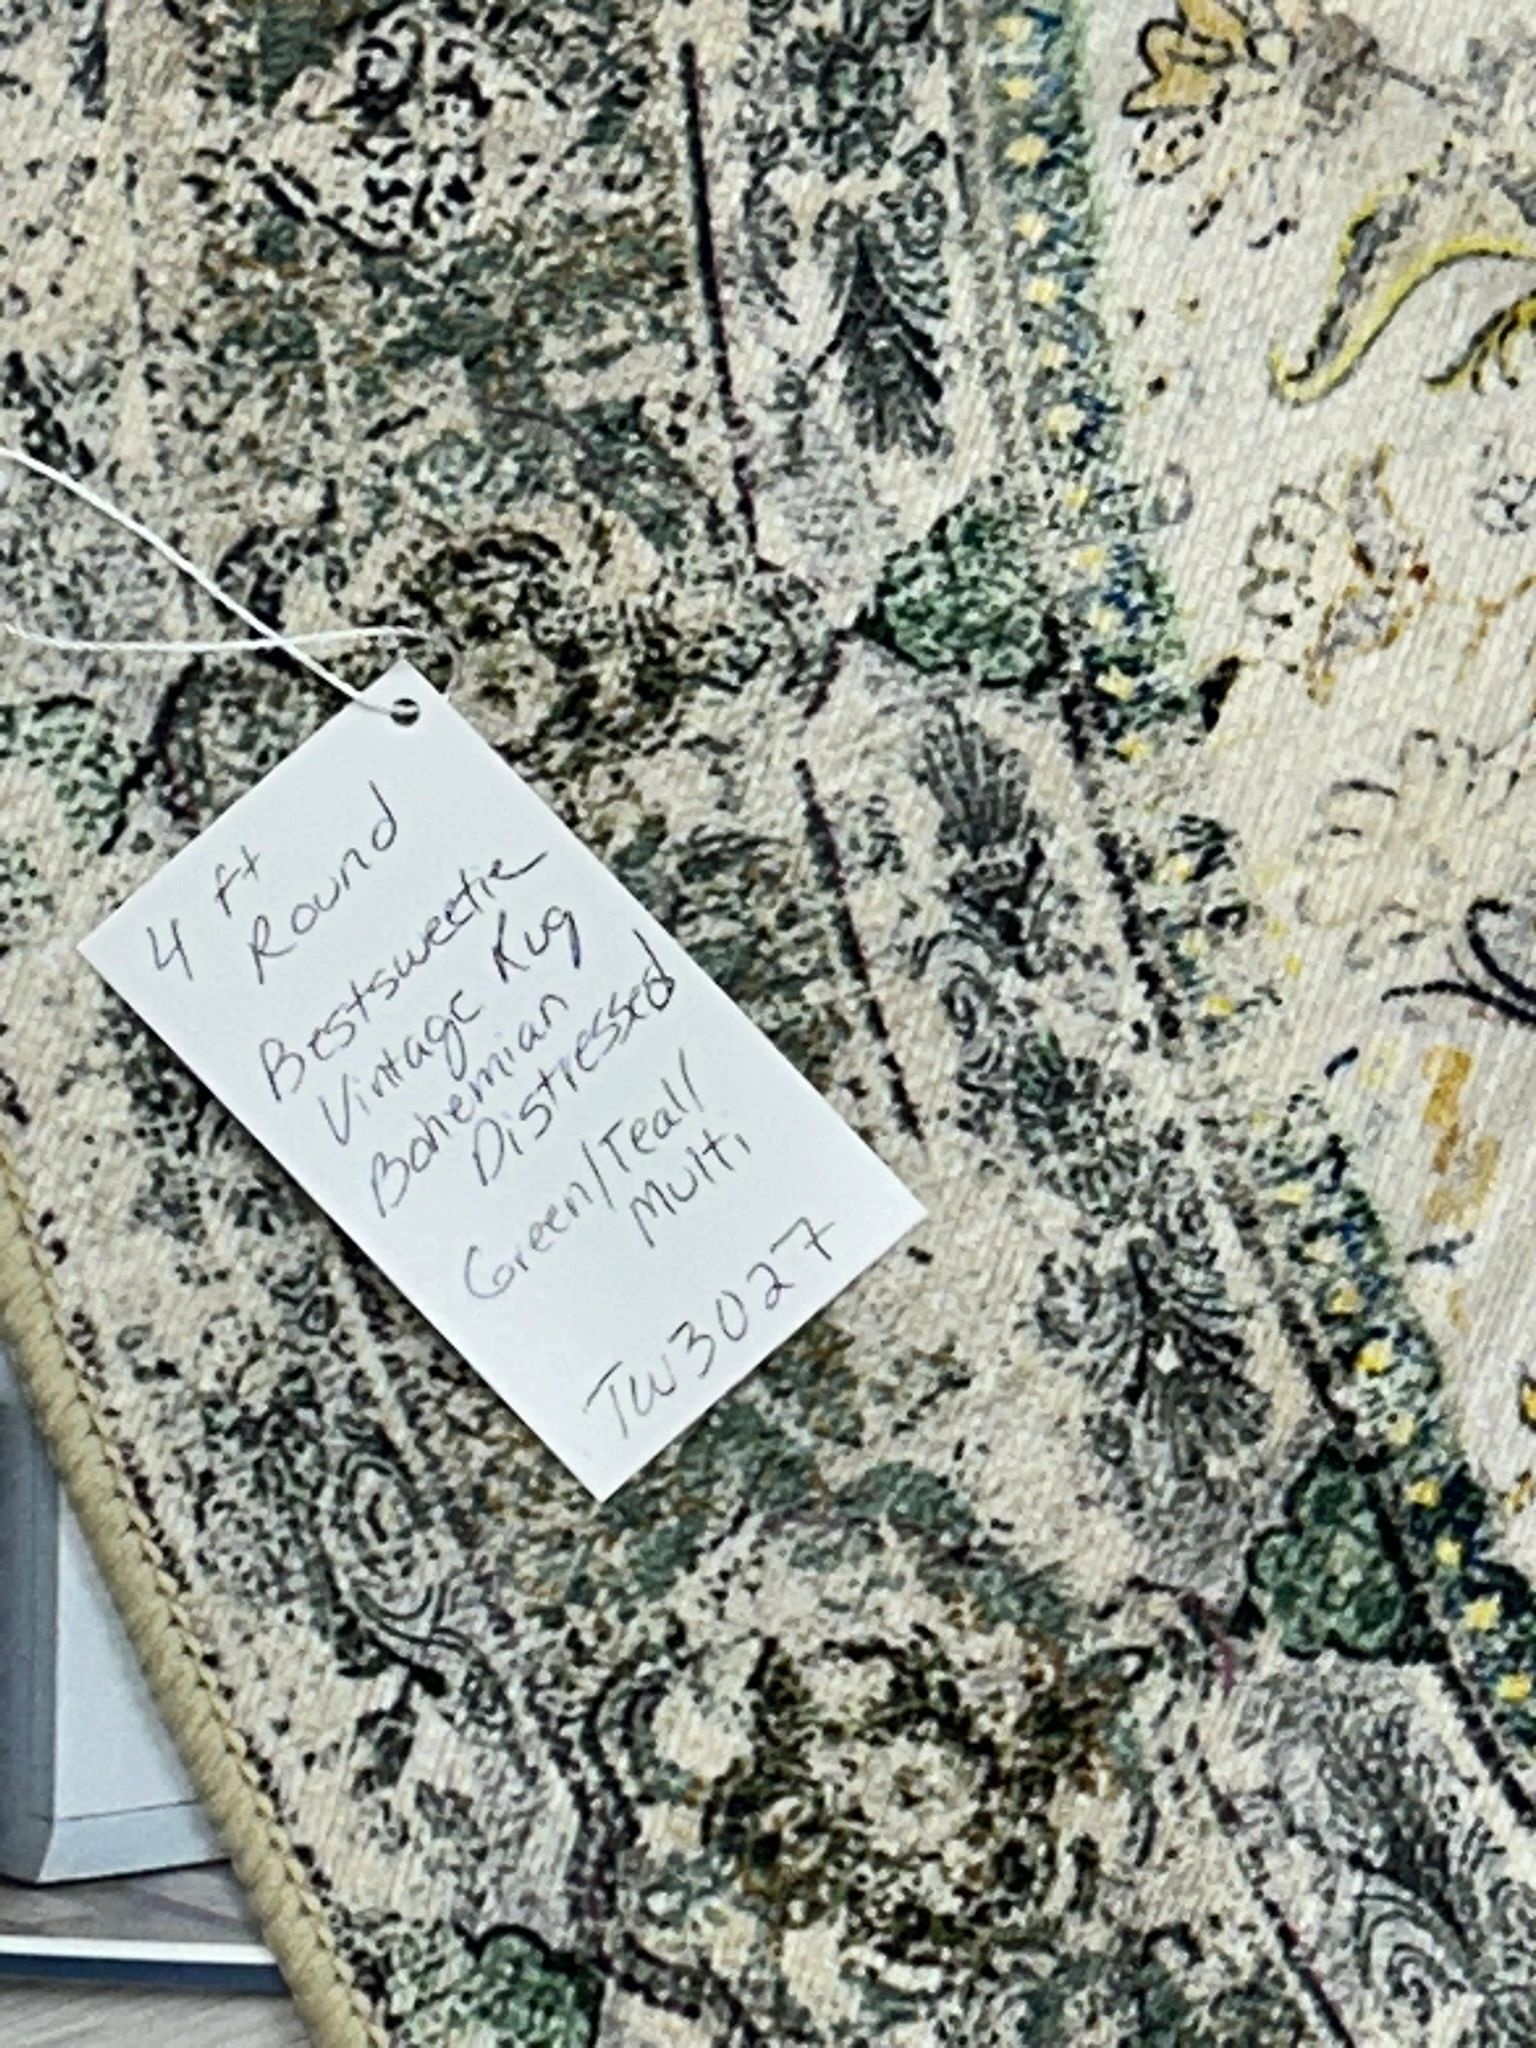 4 ft
Round
Bestsweetie
Vintage Rug
Bohemian
Distressed
Green/Teal/
Multi
TW3027